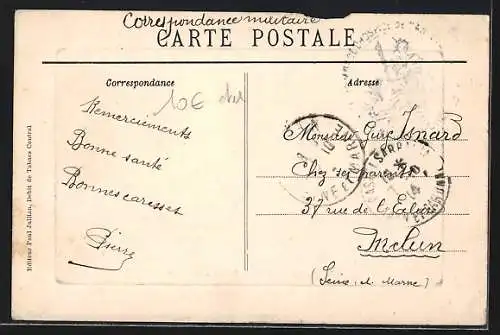 Correspondance militaire
CARTE POSTALE
Correspondance
Adresse
10€
Remerciements
Bonne santé
Bonnes caresses
Pierre
Monsieur Isnard
Chez ses parents
37 rue de
Melun
(Seine et Marne)
Editeur Paul Jullian, Débit de Tabacs Central